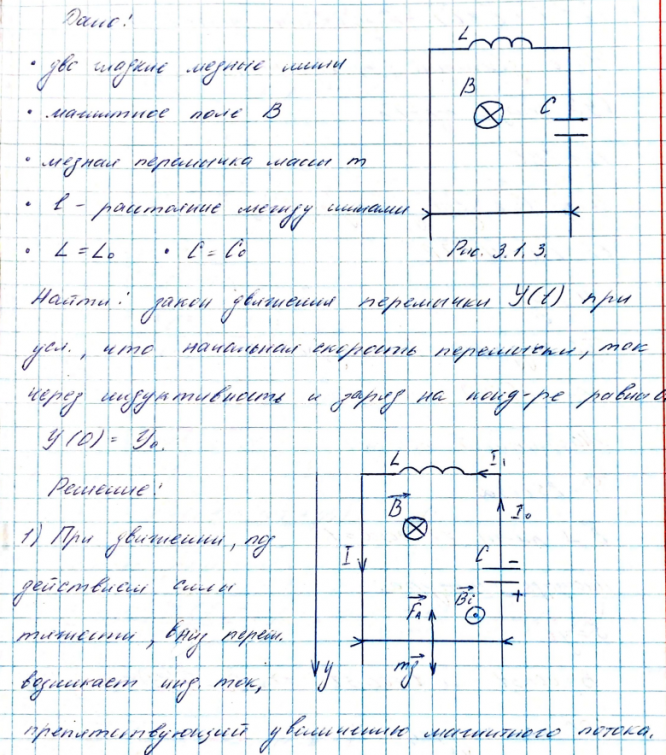 Дано:
• две гладкие медные шины
• магнитное поле B
• медная перемычка массы m
• l - расстояние между шинами
• L = L₀ • C = C₀
L
B
C
Рис. 3.1.3.
Найти: закон движения перемычки Y(t) при
усл., что начальная скорость перемычки, ток
через индуктивность и заряд на конд-ре равна 0.
Y(0) = Y₀.
Решение:
1) При движении, под
действием силы
тяжести, вниз перем.
возникает инд. ток,
препятствующий увеличению магнитного потока.
L
I₁
B
I₀
I
C
-
+
Fₐ
Bi
mg
y